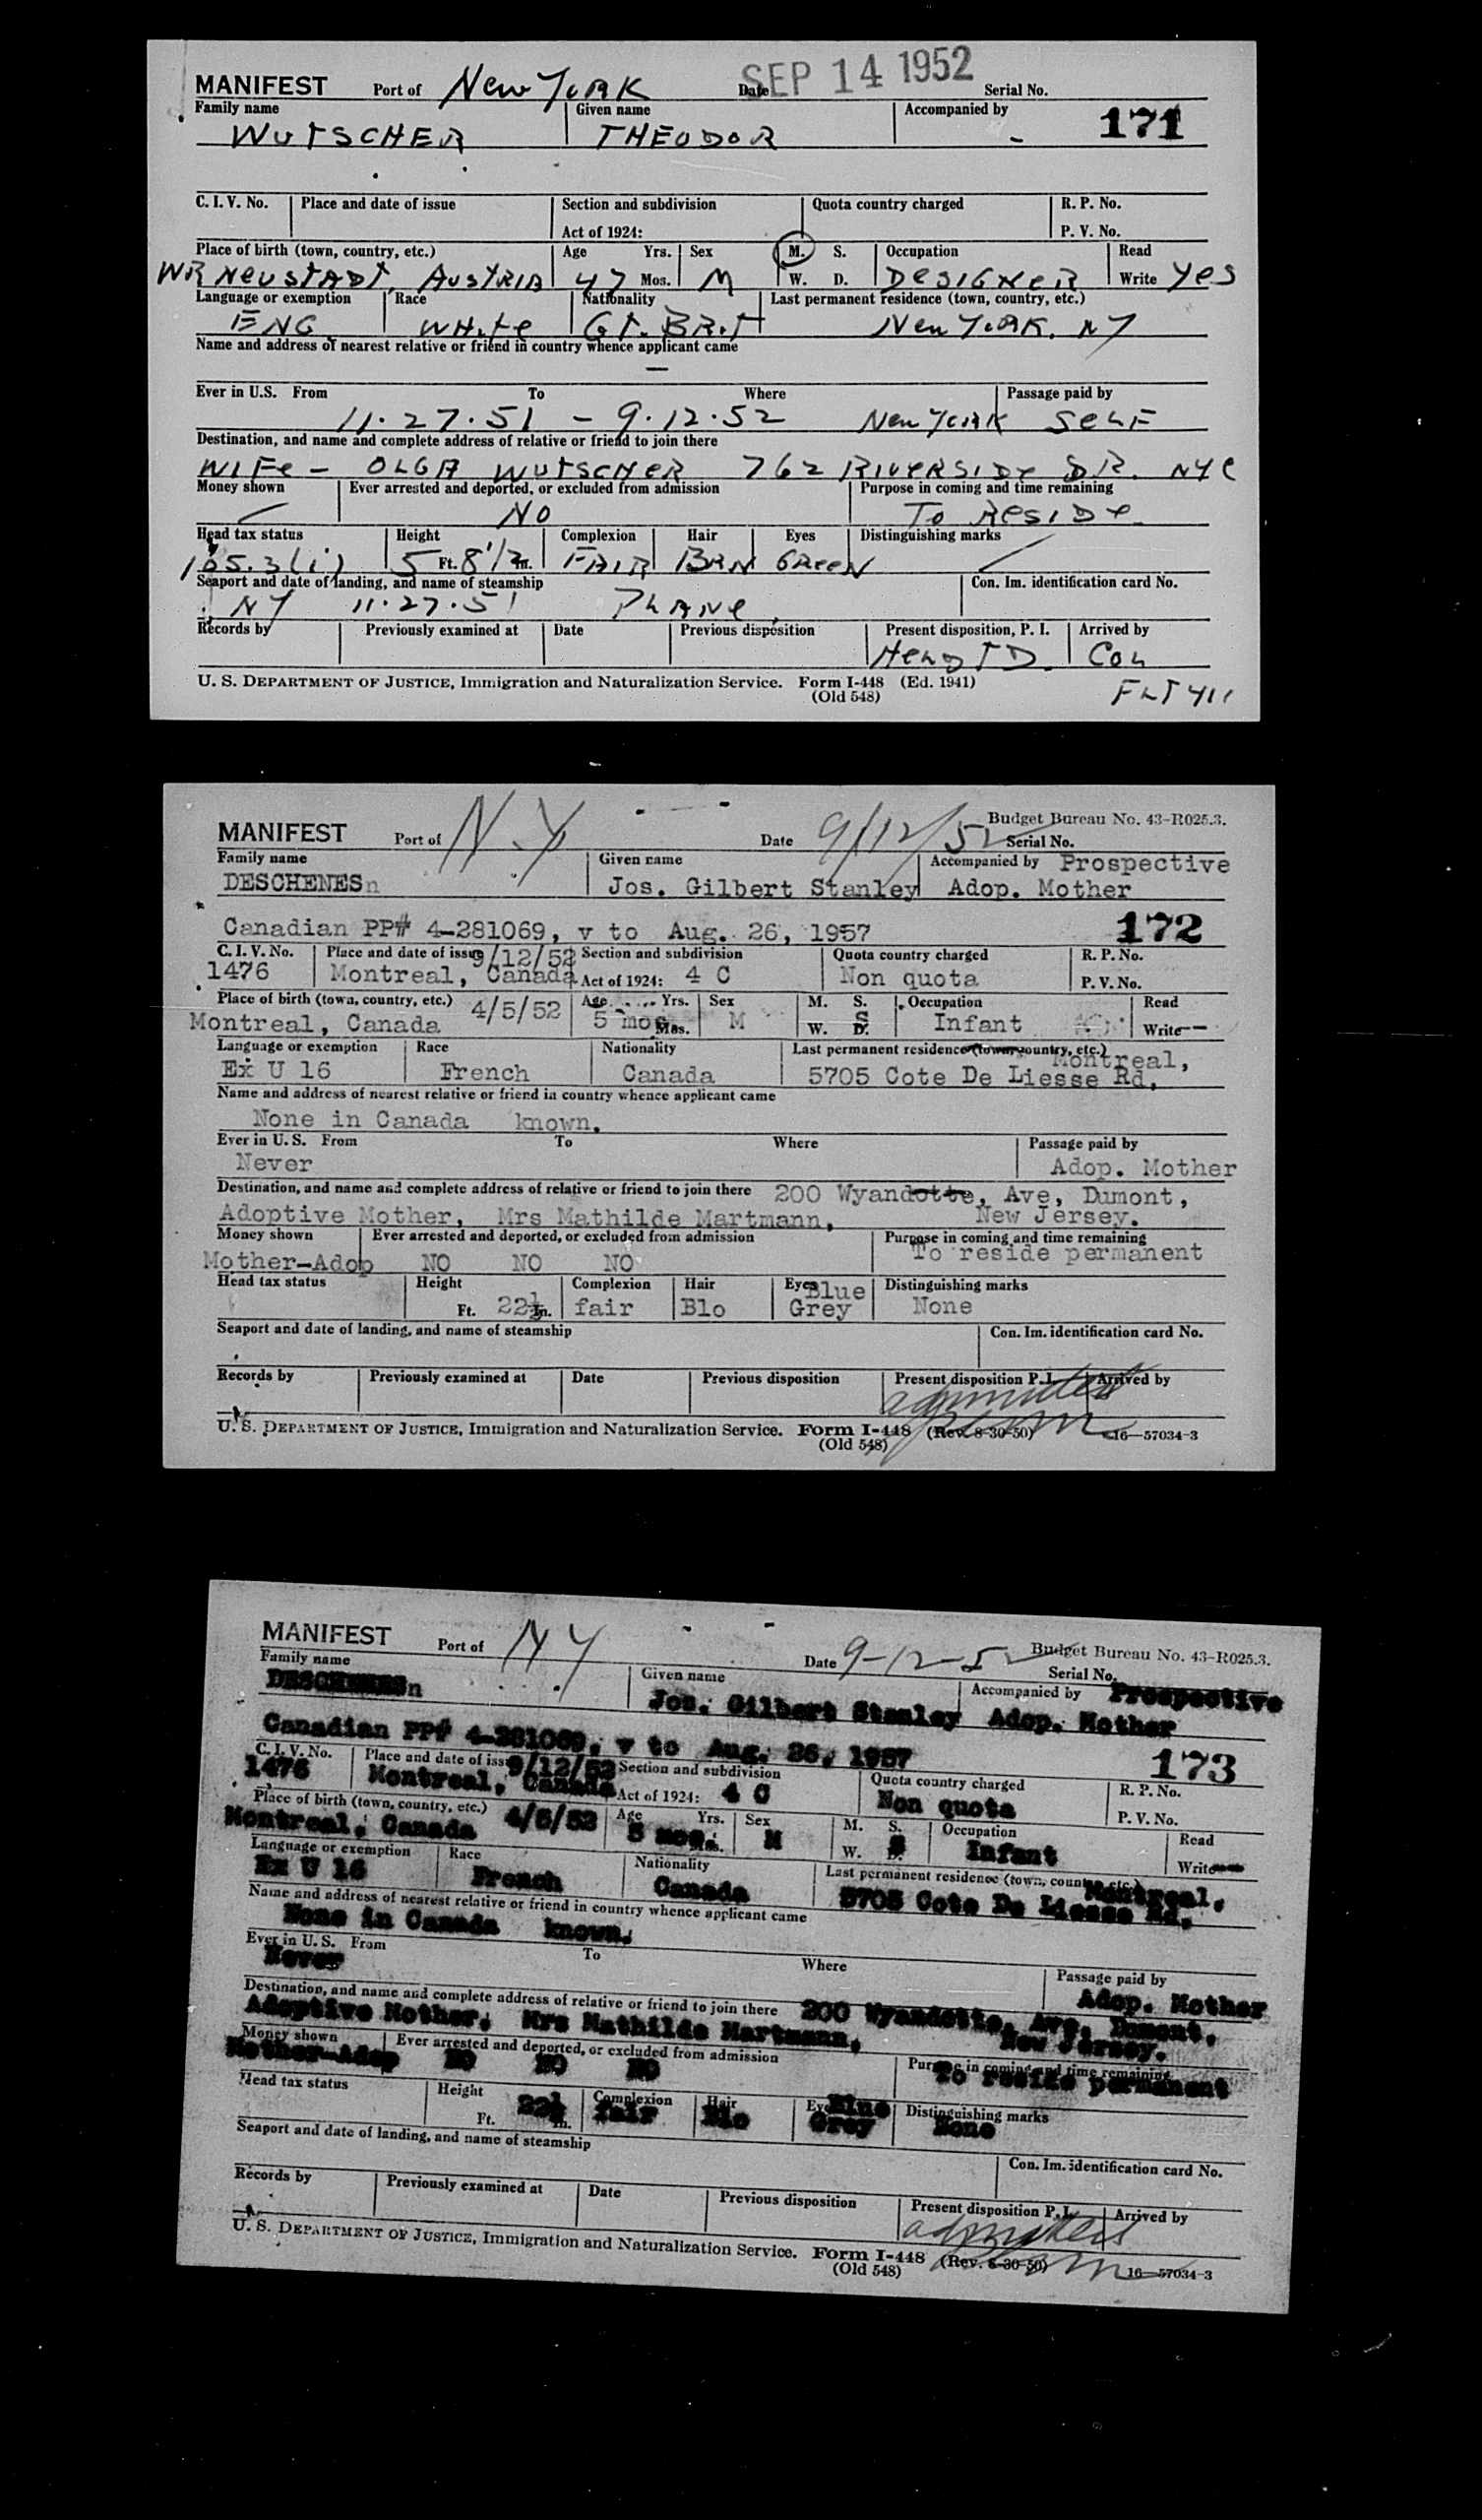 MANIFEST Port of New York Date SEP 14 1952 Serial No.
Family name Given name Accompanied by 171
WUTSCHER THEODOR -
C. I. V. No. Place and date of issue Section and subdivision Quota country charged R. P. No.
Act of 1924: P. V. No.
Place of birth (town, country, etc.) Age Yrs. Sex M. S. Occupation Read
WR NEUSTADT, AUSTRIA 47 Mos. M W. D. DESIGNER Write Yes
Language or exemption Race Nationality Last permanent residence (town, country, etc.)
ENG WHITE GT. BRIT New YORK, NY
Name and address of nearest relative or friend in country whence applicant came
—
Ever in U.S. From To Where Passage paid by
11.27.51 - 9.12.52 New YORK SELF
Destination, and name and complete address of relative or friend to join there
WIFE - OLGA WUTSCHER 762 RIVERSIDE DR. NYC
Money shown Ever arrested and deported, or excluded from admission Purpose in coming and time remaining
NO To RESIDE
Head tax status Height Complexion Hair Eyes Distinguishing marks
105.3(i) 5 Ft. 8 1/2 In. FAIR BRN GREEN
Seaport and date of landing, and name of steamship Con. Im. identification card No.
NY 11.27.51 PLANE
Records by Previously examined at Date Previous disposition Present disposition, P. I. Arrived by
COL
U. S. DEPARTMENT OF JUSTICE, Immigration and Naturalization Service. Form I-448 (Ed. 1941)
(Old 548) FLT 411
Budget Bureau No. 43-R025.3.
MANIFEST Port of N.Y. Date 9/12/52 Serial No.
Family name Given name Accompanied by Prospective
DESCHENESn Jos. Gilbert Stanley Adop. Mother
Canadian PP# 4-281069, v to Aug. 26, 1957 172
C. I. V. No. Place and date of issue 9/12/52 Section and subdivision Quota country charged R. P. No.
1476 Montreal, Canada Act of 1924: 4 C Non quota P. V. No.
Place of birth (town, country, etc.) 4/5/52 Age Yrs. Sex M. S. Occupation Read
Montreal, Canada 5 mos. Mos. M W. S D. Infant Write--
Language or exemption Race Nationality Last permanent residence (town, country, etc.) Montreal,
Ex U 16 French Canada 5705 Cote De Liesse Rd,
Name and address of nearest relative or friend in country whence applicant came
None in Canada known.
Ever in U. S. From To Where Passage paid by
Never Adop. Mother
Destination, and name and complete address of relative or friend to join there 200 Wyandotte, Ave, Dumont,
Adoptive Mother, Mrs Mathilde Martmann, New Jersey.
Money shown Ever arrested and deported, or excluded from admission Purpose in coming and time remaining
Mother-Adop NO NO NO To reside permanent
Head tax status Height Complexion Hair Eyes Blue Distinguishing marks
Ft. 22½ In. fair Blo Grey None
Seaport and date of landing, and name of steamship Con. Im. identification card No.
Records by Previously examined at Date Previous disposition Present disposition P. I. Arrived by
admitted
U. S. DEPARTMENT OF JUSTICE, Immigration and Naturalization Service. Form I-448 (Rev. 8-30-50) 16—57034-3
(Old 548)
MANIFEST Port of NY Date 9-12-52 Budget Bureau No. 43-R025.3.
Serial No.
Family name Given name Accompanied by Prospective
DESCHENESn Jos. Gilbert Stanley Adop. Mother
Canadian PP# 4-281069, v to Aug. 26, 1957 173
C. I. V. No. Place and date of issue 9/12/52 Section and subdivision Quota country charged R. P. No.
1476 Montreal, Canada Act of 1924: 4 C Non quota P. V. No.
Place of birth (town, country, etc.) 4/5/52 Age Yrs. Sex M. S. Occupation Read
Montreal, Canada 5 mos. M W. D. Infant Write--
Language or exemption Race Nationality Last permanent residence (town, country, etc.) Montreal,
Ex U 16 French Canada 5705 Cote De Liesse Rd,
Name and address of nearest relative or friend in country whence applicant came
None in Canada known.
Ever in U. S. From To Where Passage paid by
Never Adop. Mother
Destination, and name and complete address of relative or friend to join there 200 Wyandotte, Ave, Dumont,
Adoptive Mother, Mrs Mathilde Martmann, New Jersey.
Money shown Ever arrested and deported, or excluded from admission Purpose in coming and time remaining
Mother-Adop NO NO NO To reside permanent
Head tax status Height Complexion Hair Eyes Blue Distinguishing marks
Ft. 22½ In. fair Blo Grey None
Seaport and date of landing, and name of steamship Con. Im. identification card No.
Records by Previously examined at Date Previous disposition Present disposition P. I. Arrived by
admitted
U. S. DEPARTMENT OF JUSTICE, Immigration and Naturalization Service. Form I-448 (Rev. 8-30-50) 16—57034-3
(Old 548)